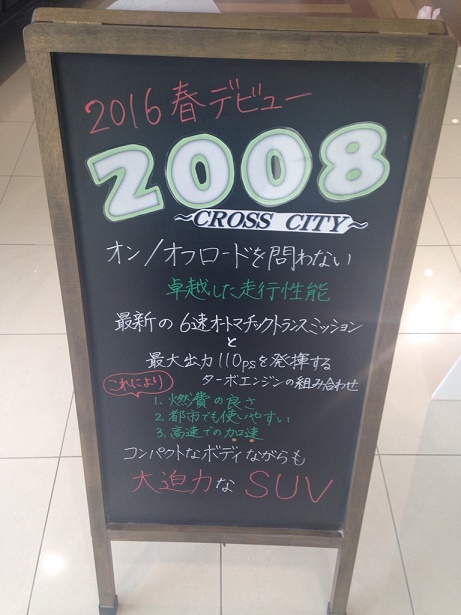 2016 春デビュー
2008
CROSS CITY
オン/オフロードを問わない
卓越した走行性能
最新の6速オートマチックトランスミッション
と
最大出力110psを発揮する
ターボエンジンの組み合わせ
これにより
1. 燃費の良さ
2. 都市でも使いやすい
3. 高速での加速
コンパクトなボディながらも
大迫力な SUV